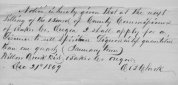 Notice is hereby given that at the next
sitting of the Board of County Commissioners
of Baker Co. Oregon I shall apply for a
license to sell spirituous liquors in quantities
than one quart
Willow Creek Baker Co. Oregon
Dec 21st 1869 Clark